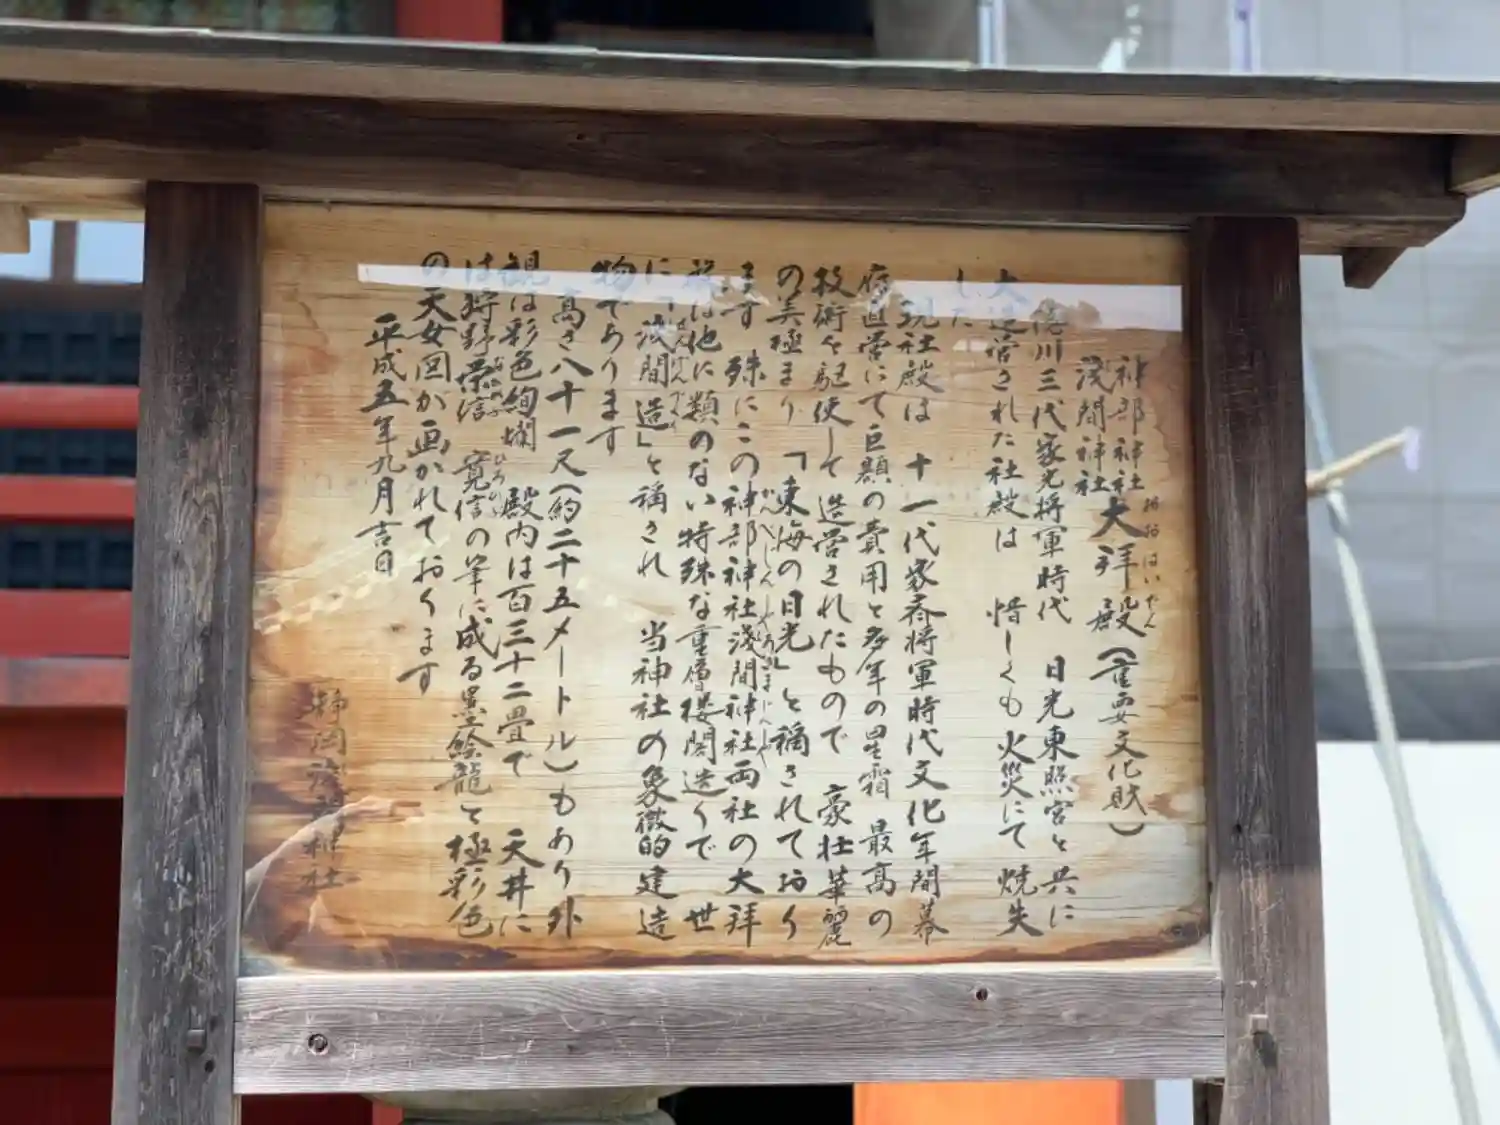 神部神社
浅間神社
大拝殿(重要文化財)
おおはいでん
徳川三代家光将軍時代 日光東照宮と共に
大造営された社殿は 惜しくも火災にて焼失
した
現社殿は 十一代家斉将軍時代文化年間幕
府直営にて巨額の費用と多年の星霜 最高の
技術を駆使して造営されたもので 豪壮華麗
の美極まり「東海の日光」と称されており
ます 殊にこの神部神社浅間神社両社の大拝
かんべじんじゃ
殿は他に類のない特殊な重層楼閣造りで 世
に「浅間造」と称され 当神社の象徴的建造
せんげんづくり
物であります
高さ八十一尺(約二十五メートル)もあり外
観は彩色絢爛 殿内は百三十二畳で 天井に
は狩野栄信 寛信の筆に成る墨絵龍と極彩色
ひろのぶ
の天女図が画かれております
平成五年九月吉日
静岡浅間神社